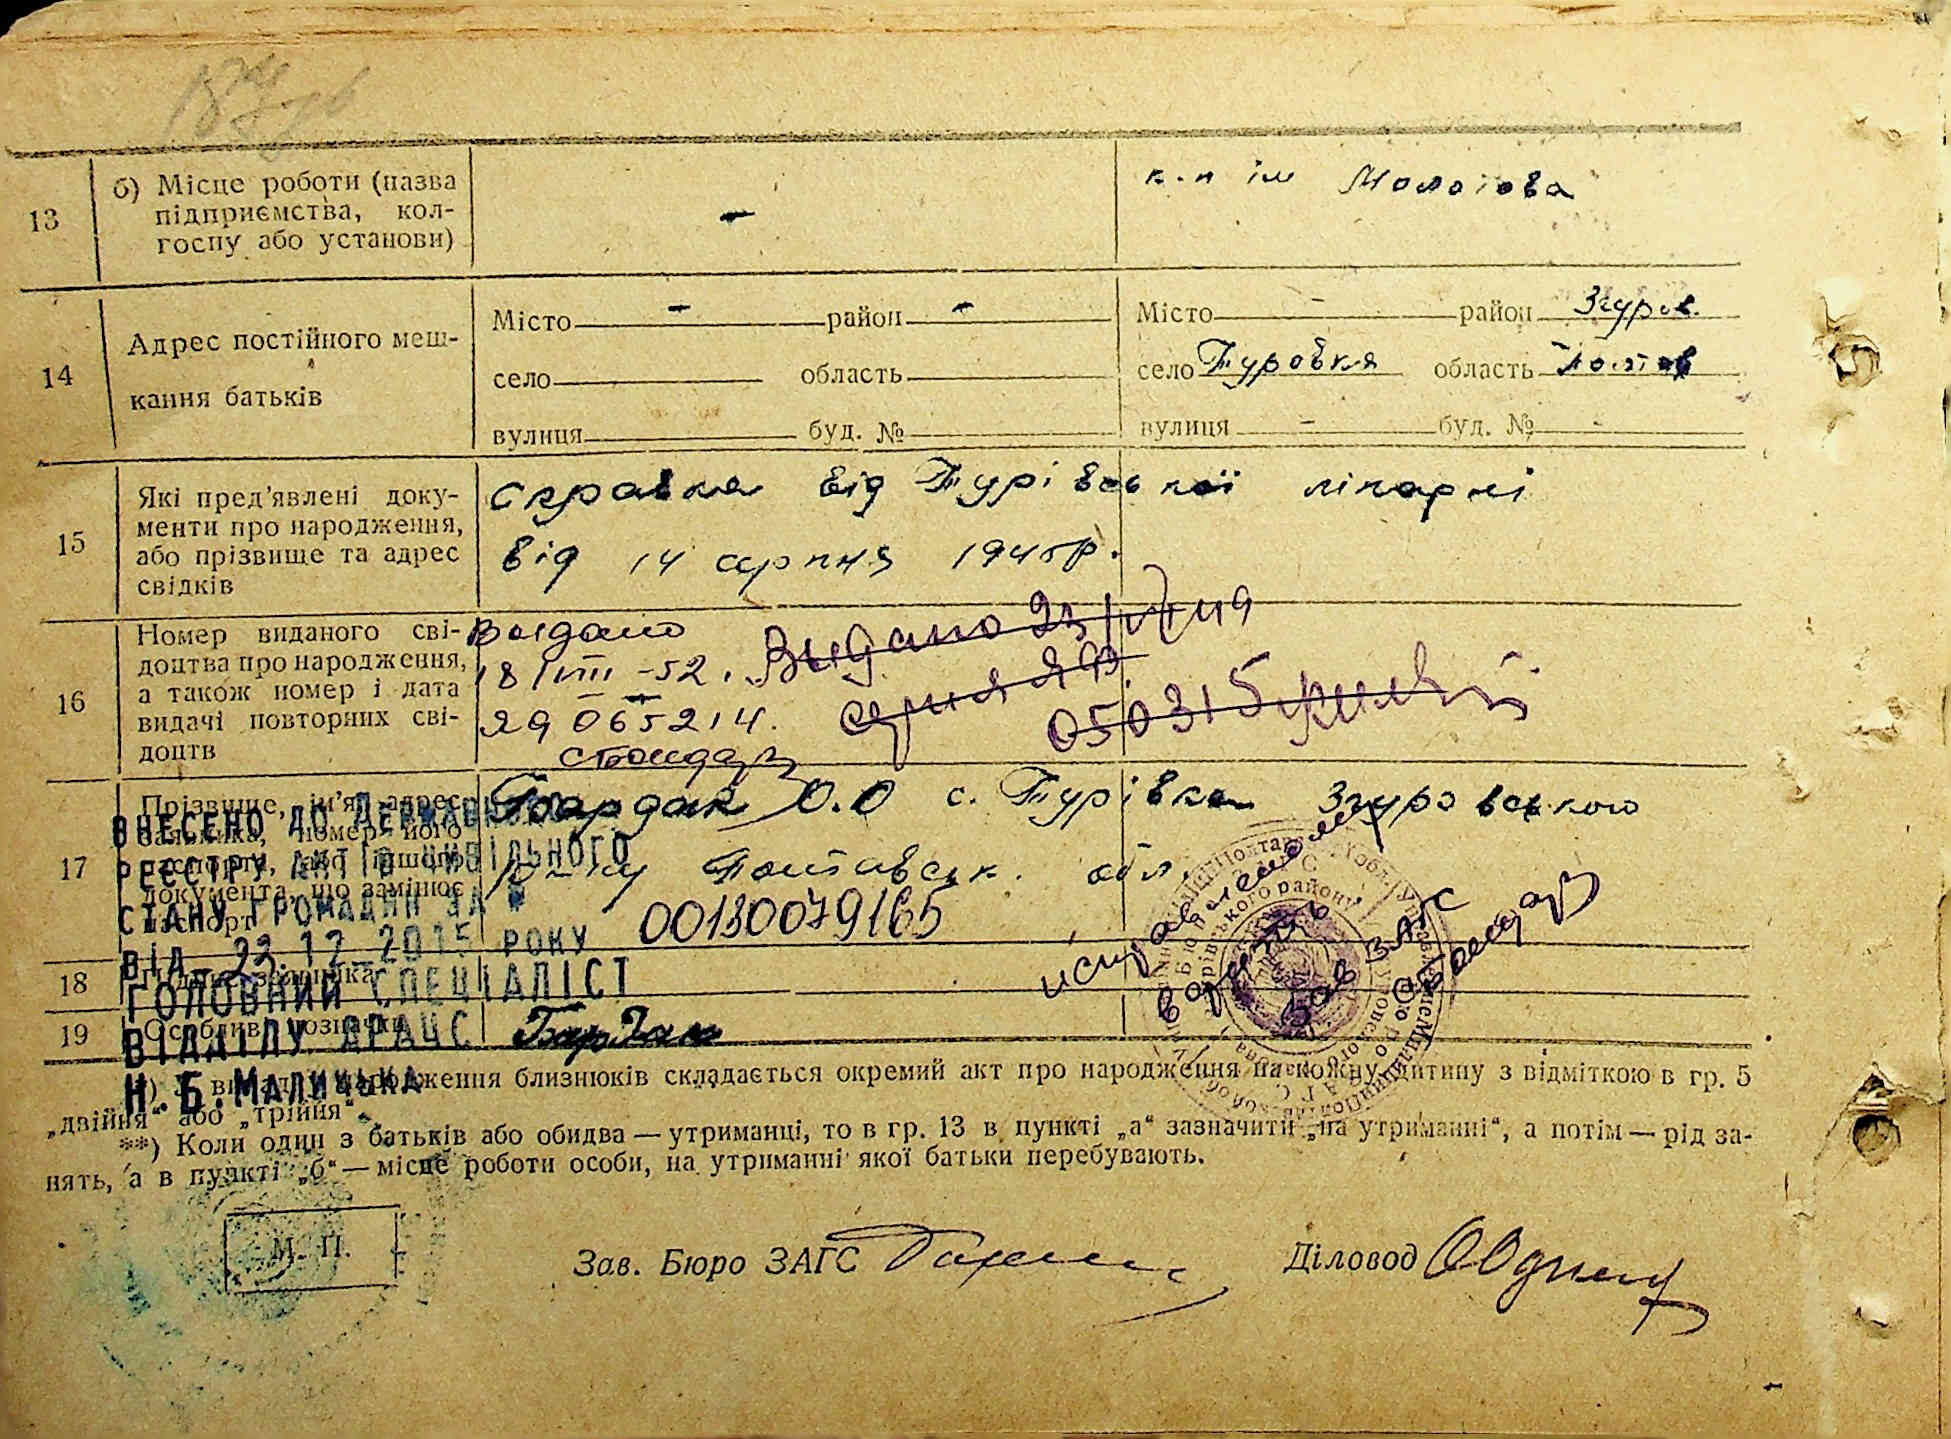 13
б) Місце роботи (назва
підприємства, кол-
госпу або установи)
-
к-п ім Молотова
14
Адрес постійного меш-
кання батьків
Місто - район -
село область
вулиця буд. №
Місто - район Згуров.
село Туровка область Полтав
вулиця - буд. № -
15
Які пред'явлені доку-
менти про народження,
або прізвище та адрес
свідків
справка від Турівської лікарні
від 14 серпня 1945р.
16
Номер виданого сві-
доцтва про народження,
а також номер і дата
видачі повторних сві-
доцтв
Выдано
18/VIII-52.
ЯЯ 065214.
Выдано 23
серия ЯЯ
050315
17
Прізвище, ім'я, адрес
заявника, номер його
паспорту, або іншого
документа, що замінює
паспорт
Бардак О.О с. Турівка Згуровського
р-ну Полтавськ. обл.
00130079165
ВНЕСЕНО ДО ДЕРЖАВНОГО
РЕЄСТРУ АКТІВ ЦИВІЛЬНОГО
СТАНУ ГРОМАДЯН ЗА №
ВІД 23.12.2015 РОКУ
ГОЛОВНИЙ СПЕЦІАЛІСТ
ВІДДІЛУ ДРАЦС
Н.Б.МАЛИЦЬКА
18
19
Особливі позначки
Бардак
исправленному
верить
Зав ЗАГС
*) У випадку народження близнюків складається окремий акт про народження на кожну дитину з відміткою в гр. 5
„двійня“ або „трійня“.
**) Коли один з батьків або обидва — утриманці, то в гр. 13 в пункті „а“ зазначити „на утриманні“, а потім — рід за-
нять, а в пункті „б“ — місце роботи особи, на утриманні якої батьки перебувають.
М. П.
Зав. Бюро ЗАГС
Діловод